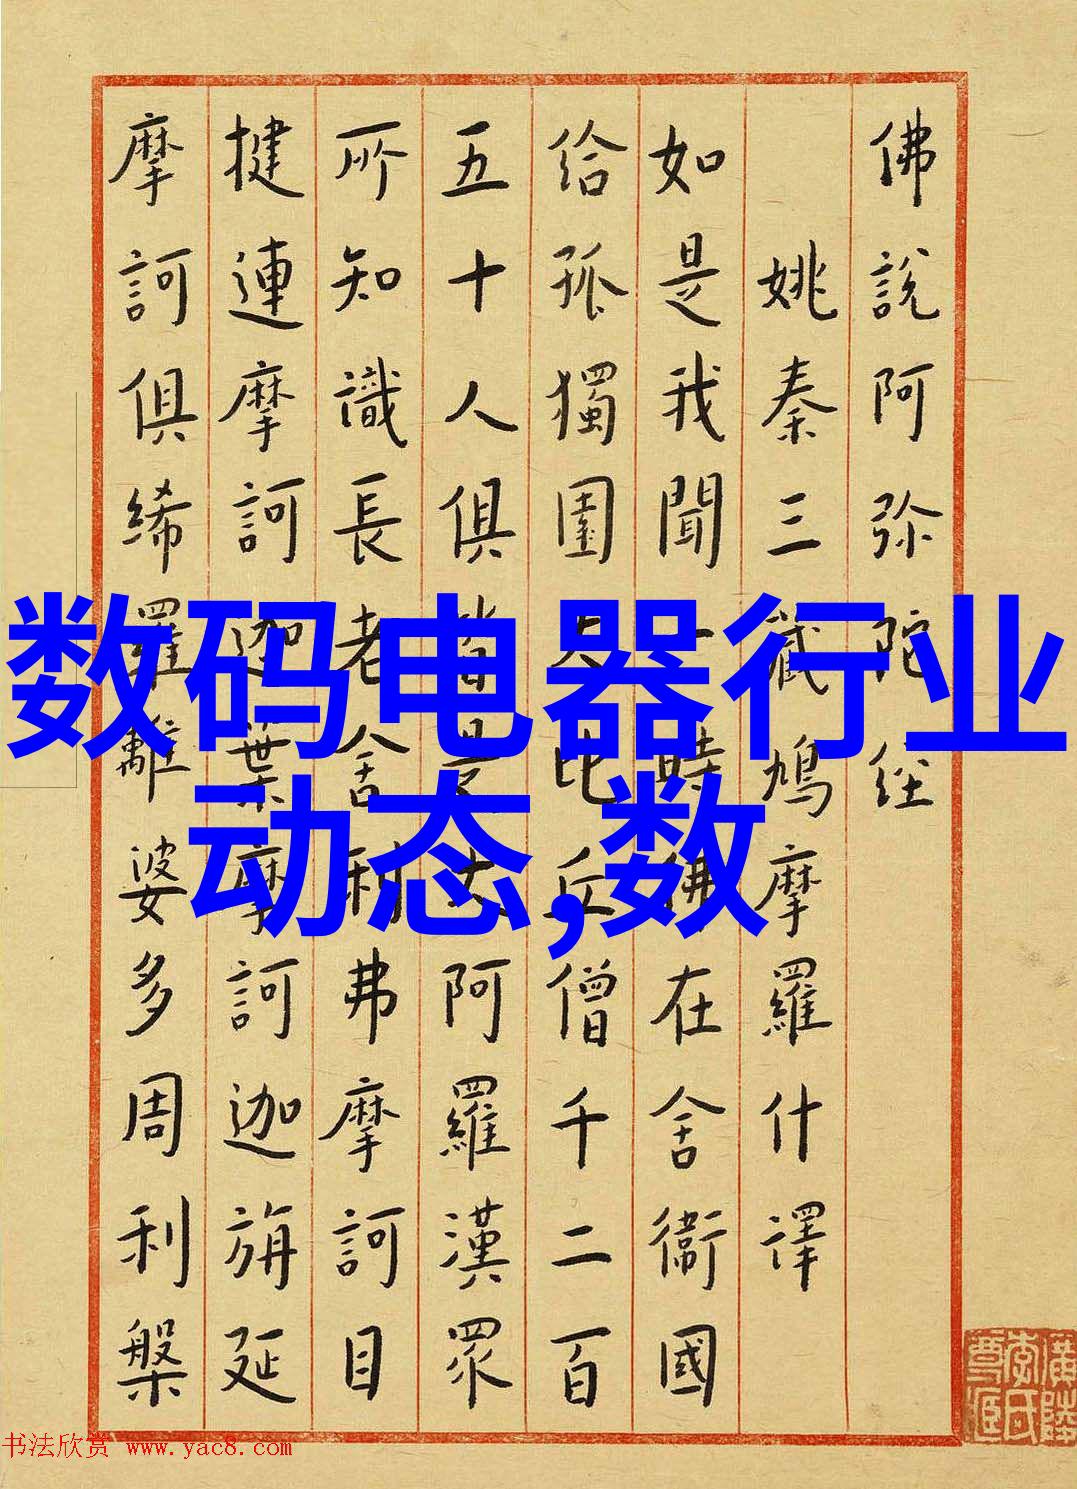 佛說阿弥陀经
姚秦三藏鳩摩羅什譯
如是我聞一時佛在舍衞國
给孤獨園大比丘僧千二百
五十人俱皆是大阿羅漢眾
所知識長老舍利弗摩訶目
揵連摩訶迦葉摩訶迦旃延
摩訶俱絺羅離婆多周利槃
数码电器行业
动态,数
书法欣赏 www.yac8.com